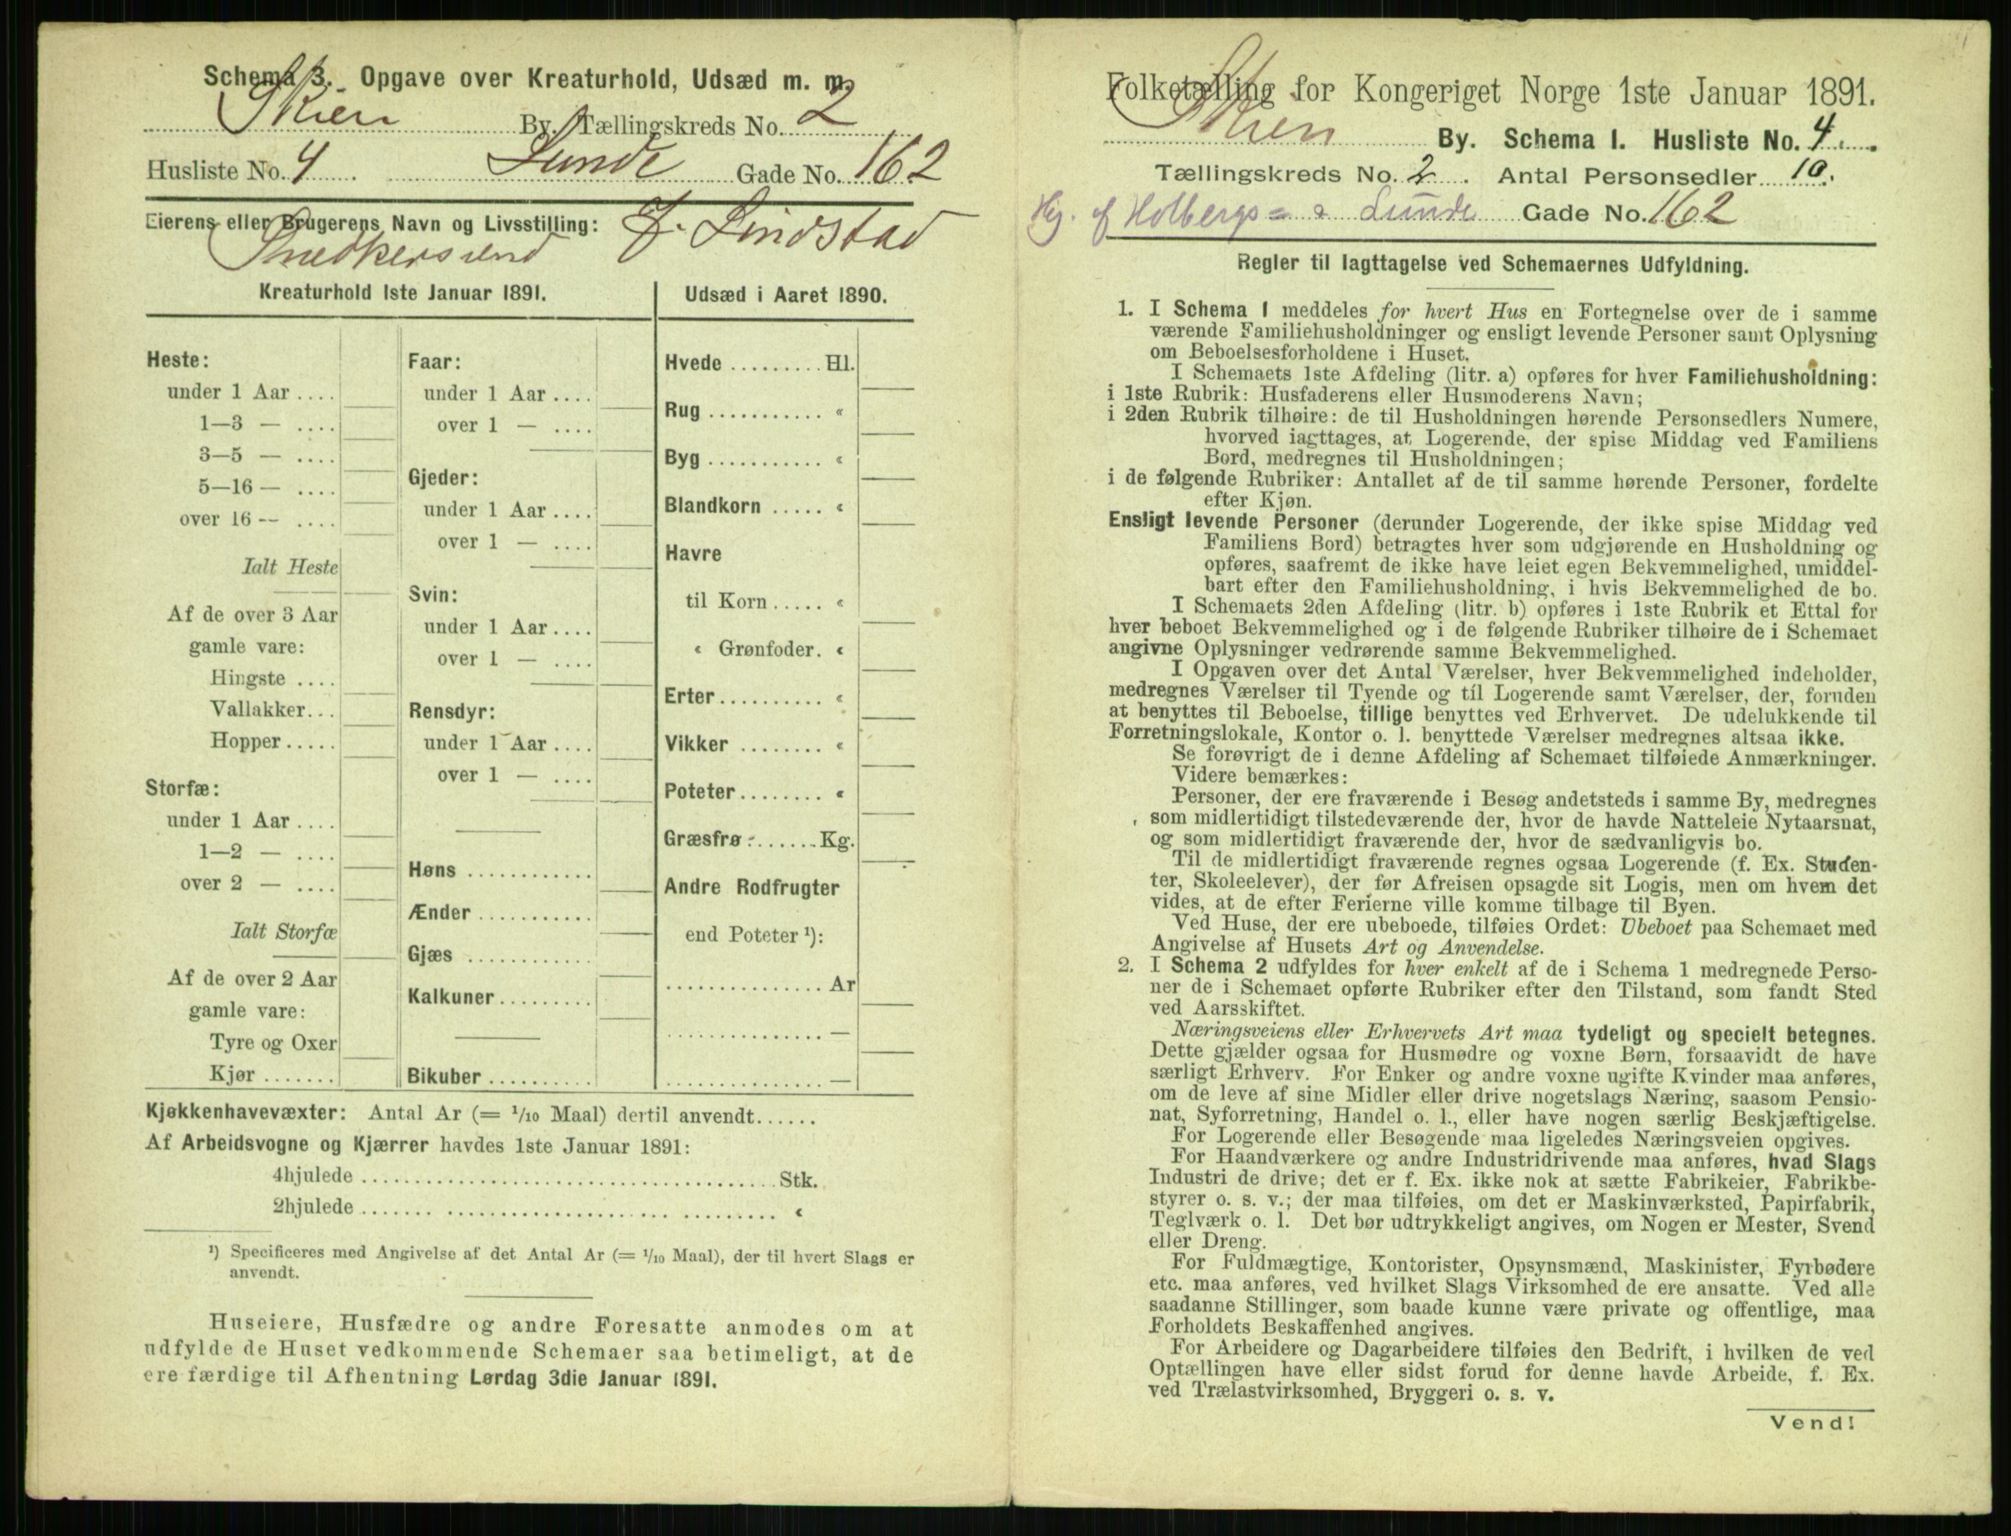 Schema 3. Opgave over Kreaturhold, Udsæd m. m.
Skien By. Tællingskreds No. 2
Husliste No. 4 Lunde Gade No. 162
Eierens eller Brugerens Navn og Livsstilling: J. Lindstad
Snedkersvend
Kreaturhold 1ste Januar 1891.
Heste:
under 1 Aar ....
1—3 — ....
3—5 — ....
5—16 — ....
over 16 -- ....
Ialt Heste
Af de over 3 Aar
gamle vare:
Hingste ....
Vallakker...
Hopper.....
Storfæ:
under 1 Aar ....
1—2 — ....
over 2 — ....
Ialt Storfæ
Af de over 2 Aar
gamle vare:
Tyre og Oxer
Kjør .......
Faar:
under 1 Aar ....
over 1 — ....
Gjeder:
under 1 Aar ....
over 1 — ....
Svin:
under 1 Aar ....
over 1 — ....
Rensdyr:
under 1 Aar ....
over 1 — ....
Høns ............
Ænder ...........
Gjæs ............
Kalkuner .........
Bikuber ..........
Udsæd i Aaret 1890.
Hvede ......... Hl.
Rug ........... «
Byg ........... «
Blandkorn ..... «
Havre
til Korn ..... «
« Grønfoder. «
Erter.......... «
Vikker ........ «
Poteter ........ «
Græsfrø ....... Kg.
Andre Rodfrugter
end Poteter ¹):
............... Ar
............... —
............... —
Kjøkkenhavevæxter: Antal Ar (= 1/10 Maal) dertil anvendt......
Af Arbeidsvogne og Kjærrer havdes 1ste Januar 1891:
4hjulede ........................................ Stk.
2hjulede ........................................ «
¹) Specificeres med Angivelse af det Antal Ar (= 1/10 Maal), der til hvert Slags er
anvendt.
Huseiere, Husfædre og andre Foresatte anmodes om at
udfylde de Huset vedkommende Schemaer saa betimeligt, at de
ere færdige til Afhentning Lørdag 3die Januar 1891.
Folketælling for Kongeriget Norge 1ste Januar 1891.
Skien By. Schema I. Husliste No. 4.
Tællingskreds No. 2. Antal Personsedler 10.
Hj. af Holbergs= & Lunde Gade No. 162
Regler til Iagttagelse ved Schemaernes Udfyldning.
1. I Schema 1 meddeles for hvert Hus en Fortegnelse over de i samme
værende Familiehusholdninger og ensligt levende Personer samt Oplysning
om Beboelsesforholdene i Huset.
I Schemaets 1ste Afdeling (litr. a) opføres for hver Familiehusholdning:
i 1ste Rubrik: Husfaderens eller Husmoderens Navn;
i 2den Rubrik tilhøire: de til Husholdningen hørende Personsedlers Numere,
hvorved iagttages, at Logerende, der spise Middag ved Familiens
Bord, medregnes til Husholdningen;
i de følgende Rubriker: Antallet af de til samme hørende Personer, fordelte
efter Kjøn.
Ensligt levende Personer (derunder Logerende, der ikke spise Middag ved
Familiens Bord) betragtes hver som udgjørende en Husholdning og
opføres, saafremt de ikke have leiet egen Bekvemmelighed, umiddel-
bart efter den Familiehusholdning, i hvis Bekvemmelighed de bo.
I Schemaets 2den Afdeling (litr. b) opføres i 1ste Rubrik et Ettal for
hver beboet Bekvemmelighed og i de følgende Rubriker tilhøire de i Schemaet
angivne Oplysninger vedrørende samme Bekvemmelighed.
I Opgaven over det Antal Værelser, hver Bekvemmelighed indeholder,
medregnes Værelser til Tyende og til Logerende samt Værelser, der, foruden
at benyttes til Beboelse, tillige benyttes ved Erhvervet. De udelukkende til
Forretningslokale, Kontor o. l. benyttede Værelser medregnes altsaa ikke.
Se forøvrigt de i denne Afdeling af Schemaet tilføiede Anmærkninger.
Videre bemærkes:
Personer, der ere fraværende i Besøg andetsteds i samme By, medregnes
som midlertidigt tilstedeværende der, hvor de havde Natteleie Nytaarsnat,
og som midlertidigt fraværende der, hvor de sædvanligvis bo.
Til de midlertidigt fraværende regnes ogsaa Logerende (f. Ex. Studen-
ter, Skoleelever), der før Afreisen opsagde sit Logis, men om hvem det
vides, at de efter Ferierne ville komme tilbage til Byen.
Ved Huse, der ere ubeboede, tilføies Ordet: Ubeboet paa Schemaet med
Angivelse af Husets Art og Anvendelse.
2. I Schema 2 udfyldes for hver enkelt af de i Schema 1 medregnede Perso-
ner de i Schemaet opførte Rubriker efter den Tilstand, som fandt Sted
ved Aarsskiftet.
Næringsveiens eller Erhvervets Art maa tydeligt og specielt betegnes.
Dette gjælder ogsaa for Husmødre og voxne Børn, forsaavidt de have
særligt Erhverv. For Enker og andre voxne ugifte Kvinder maa anføres,
om de leve af sine Midler eller drive nogetslags Næring, saasom Pensio-
nat, Syforretning, Handel o. l., eller have nogen særlig Beskjæftigelse.
For Logerende eller Besøgende maa ligeledes Næringsveien opgives.
For Haandværkere og andre Industridrivende maa anføres, hvad Slags
Industri de drive; det er f. Ex. ikke nok at sætte Fabrikeier, Fabrikbe-
styrer o. s. v.; der maa tilføies, om det er Maskinværksted, Papirfabrik,
Teglværk o. l. Det bør udtrykkeligt angives, om Nogen er Mester, Svend
eller Dreng.
For Fuldmægtige, Kontorister, Opsynsmænd, Maskinister, Fyrbødere
etc. maa anføres, ved hvilket Slags Virksomhed de ere ansatte. Ved alle
saadanne Stillinger, som baade kunne være private og offentlige, maa
Forholdets Beskaffenhed angives.
For Arbeidere og Dagarbeidere tilføies den Bedrift, i hvilken de ved
Optællingen have eller sidst forud for denne havde Arbeide, f. Ex.
ved Trælastvirksomhed, Bryggeri o. s. v.
Vend!